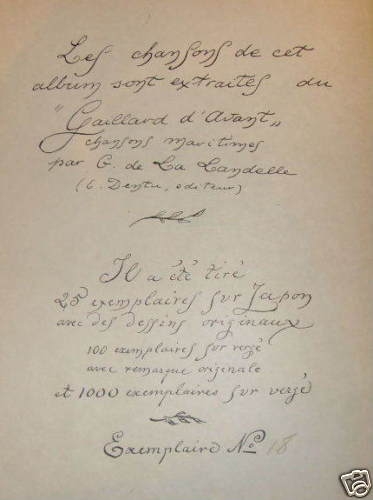 Les chansons de cet
album sont extraites du
"Gaillard d'Avant„
chansons maritimes
par G. de La Landelle
(E. Dentu, editeur)
Il a été tiré
25 exemplaires sur Japon
avec des dessins originaux
100 exemplaires sur vergé
avec remarque originale
et 1000 exemplaires sur vergé
Exemplaire No 18